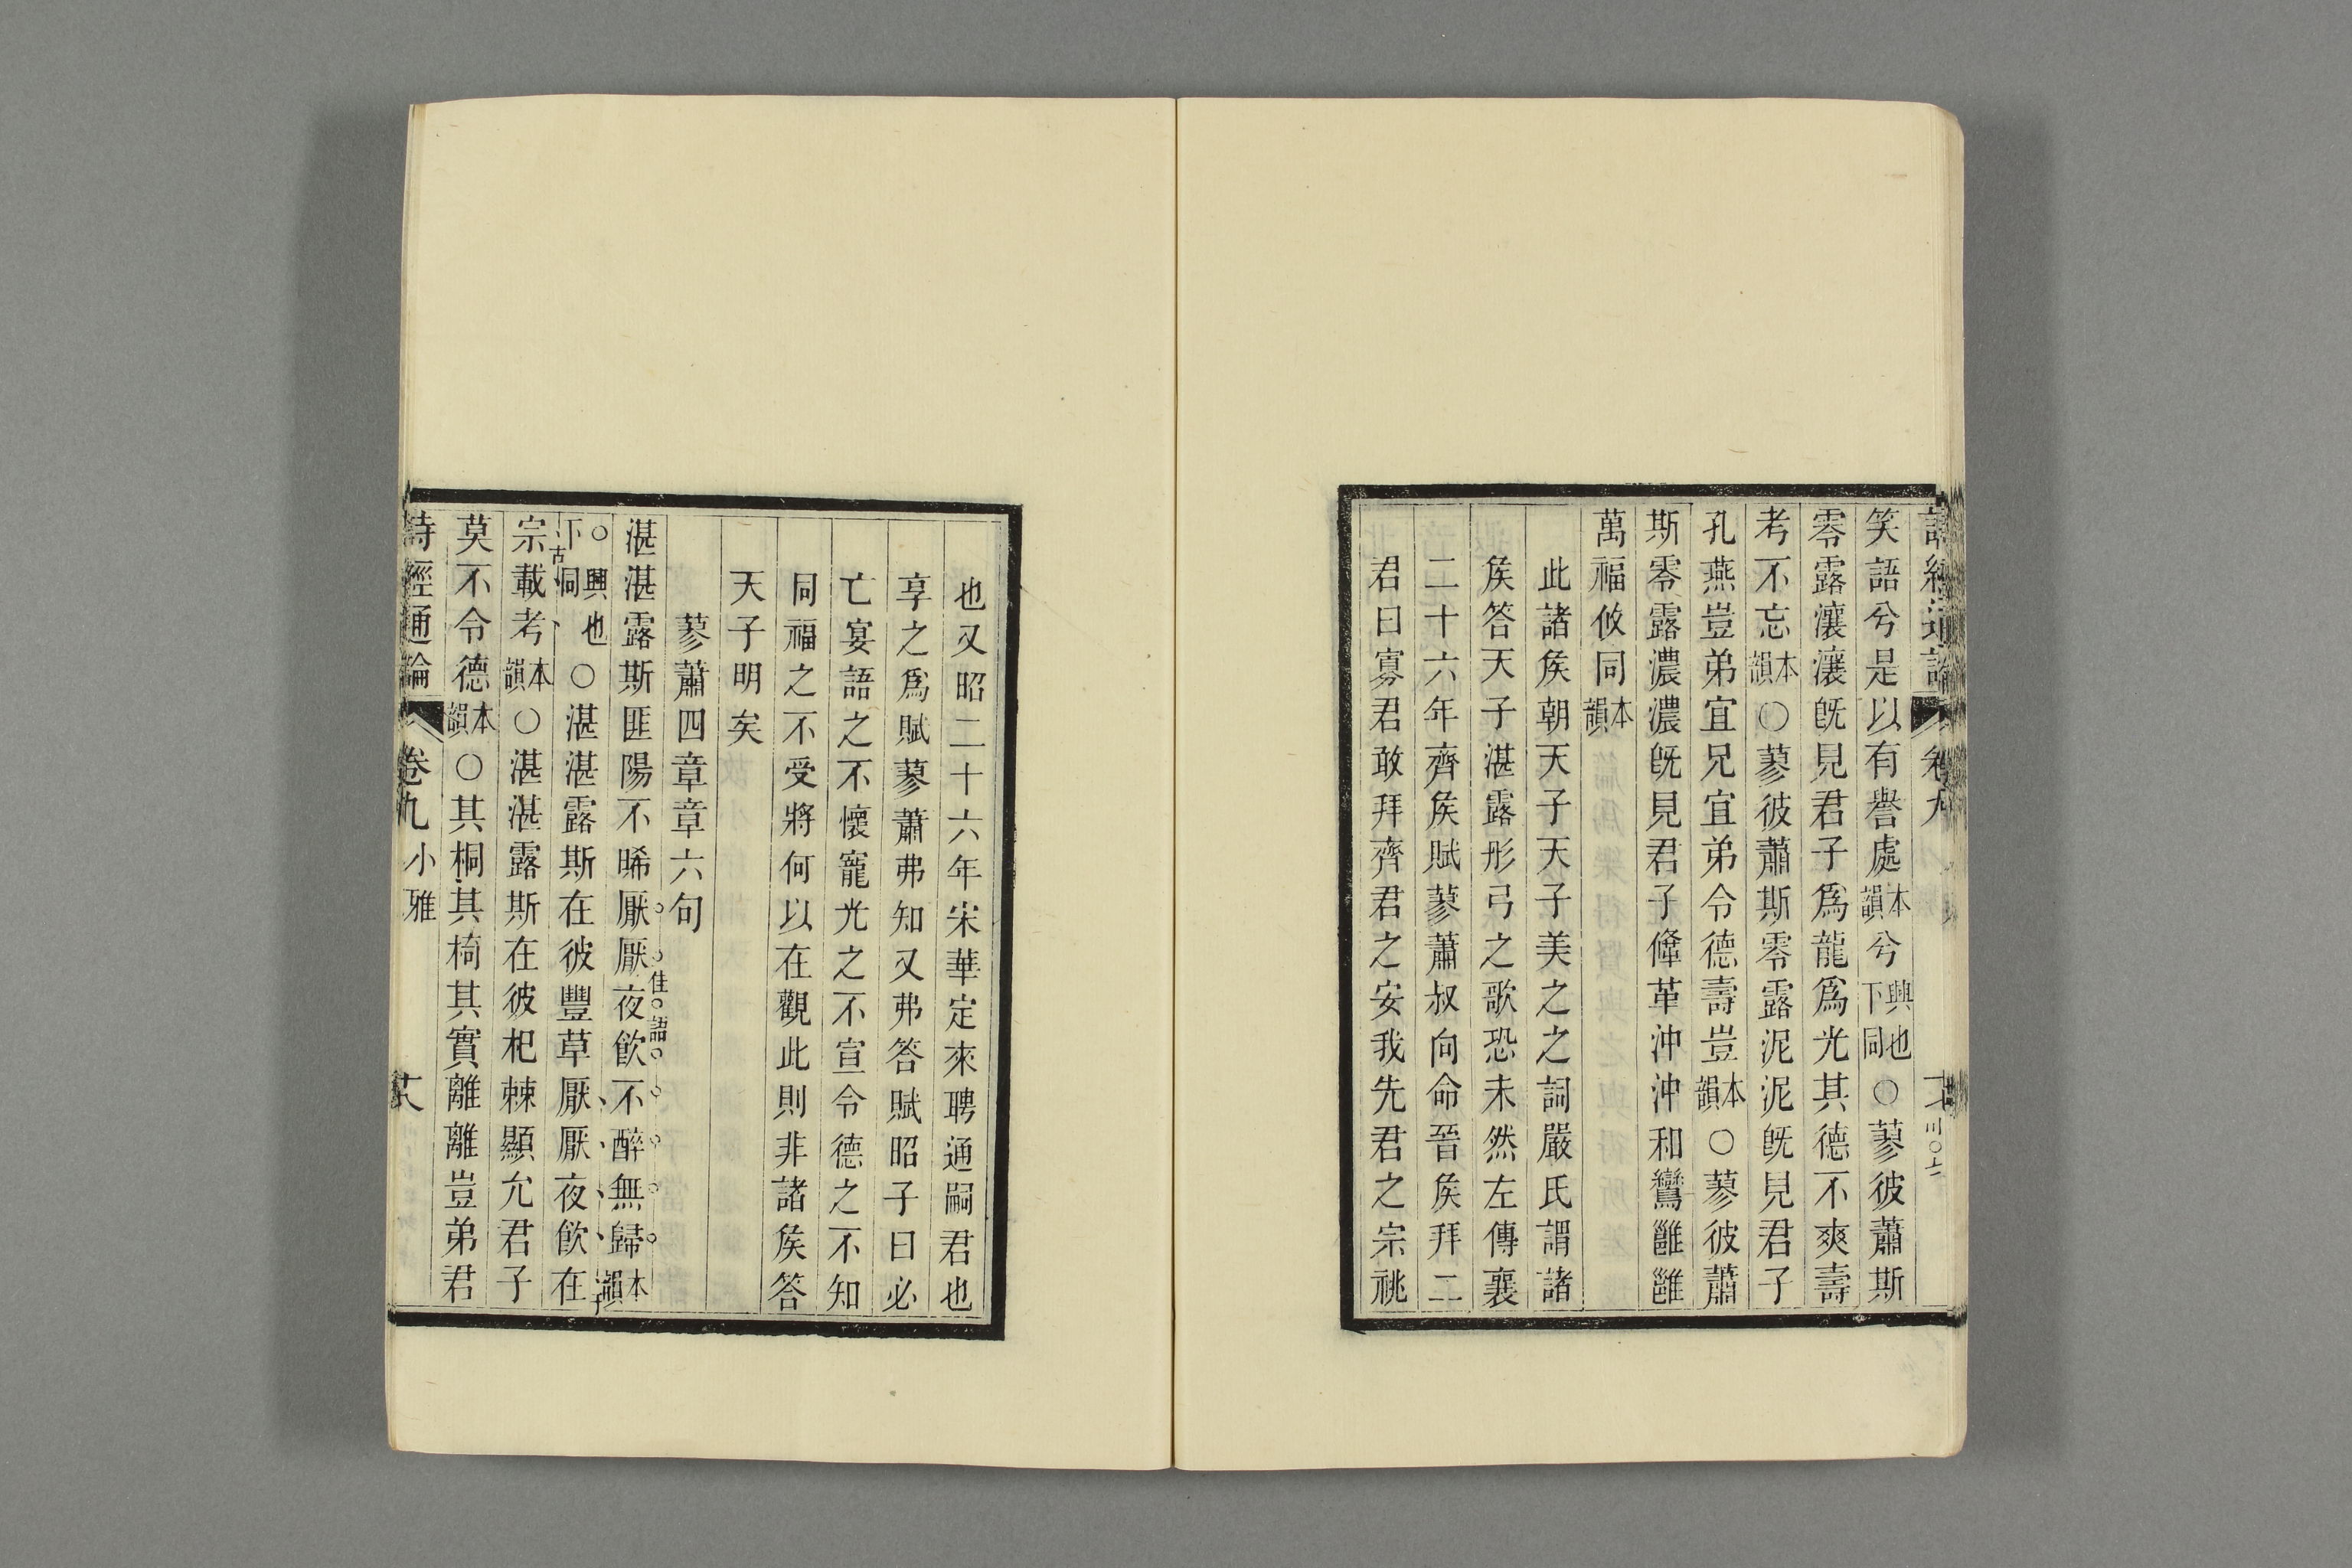 笑語兮是以有譽處本韻兮興也下同○蓼彼蕭斯
零露瀼瀼旣見君子爲龍爲光其德不爽壽
考不忘本韻○蓼彼蕭斯零露泥泥旣見君子
孔燕豈弟宜兄宜弟令德壽豈本韻○蓼彼蕭
斯零露濃濃旣見君子鞗革沖沖和鸞雝雝
萬福攸同本韻
此諸矦朝天子天子美之之詞嚴氏謂諸
矦答天子湛露彤弓之歌恐未然左傳襄
二十六年齊矦賦蓼蕭叔向命晉矦拜二
君曰寡君敢拜齊君之安我先君之宗祧
也又昭二十六年宋華定來聘通嗣君也
享之爲賦蓼蕭弗知又弗答賦昭子曰必
亡宴語之不懷寵光之不宣令德之不知
同福之不受將何以在觀此則非諸矦答
天子明矣
蓼蕭四章章六句
湛湛露斯匪陽不晞厭厭夜飮不醉無歸本韻
佳語
○興也下同○湛湛露斯在彼豐草厭厭夜飮在
宗載考本韻○湛湛露斯在彼杞棘顯允君子
莫不令德本韻○其桐其椅其實離離豈弟君
詩經通論 卷九 小雅